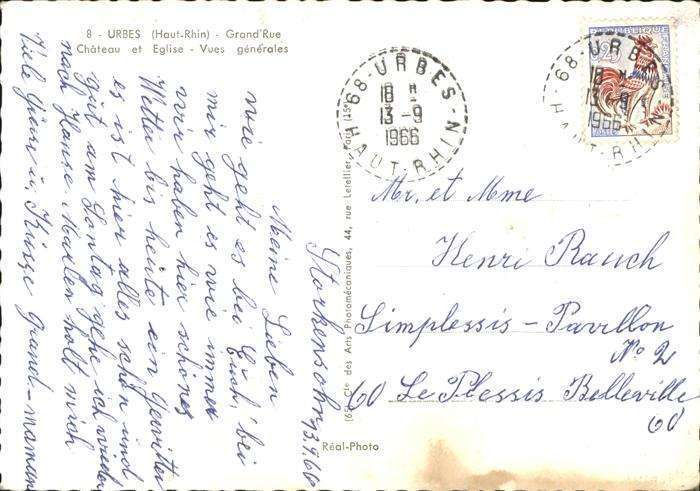 8 - URBES (Haut-Rhin) - Grand'Rue
Château et Eglise - Vues générales
Storkensohn, 13.9.66
Meine Lieben
wie geht es bei Euch, bei
mir geht es wie immer
wir haben hier schönes
Wetter bis heute ein Gewitter
es ist hier alles schön und
gut am Sontag gehe ich wieder
nach Hause Marlen holt mich
Viele Grüße u. Küsse Grand-maman
68 - URBES - HAUT-RHIN
18 H
13 - 9
1966
68 - URBES
18 H
13 - 9
1966
HAUT-RHIN
Mr. et Mme
Henri Rauch
Simplessis - Pavillon
No 2
60 Le Plessis Belleville
60
(65) Cie des Arts Photomécaniques, 44, rue Letellier, Paris (15e)
Réal-Photo